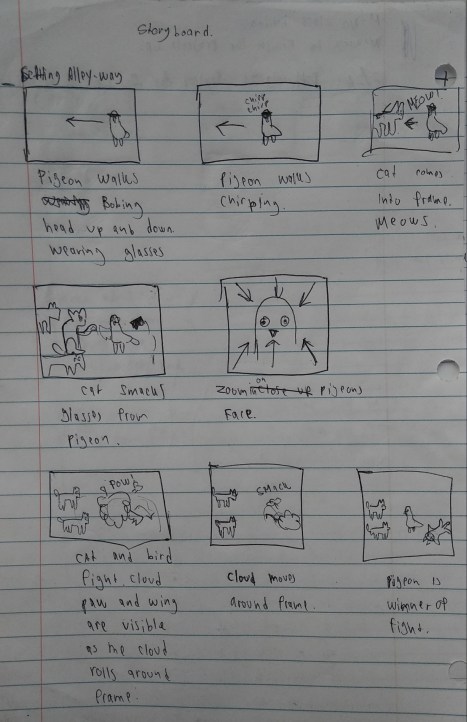 Storyboard.
Setting Alley-way
chirp
chirp
MEOW!
Pigeon walks
Bobing
head up and down
wearing glasses
Pigeon walks
Chirping.
cat comes
Into frame.
Meows.
cat smacks
glasses from
pigeon.
zoom in on close up pigeons
Face.
POW!
SMACK
cat and bird
fight cloud
paw and wing
are visible
as the cloud
rolls around
frame.
cloud moves
around frame.
pigeon is
winner of
fight.